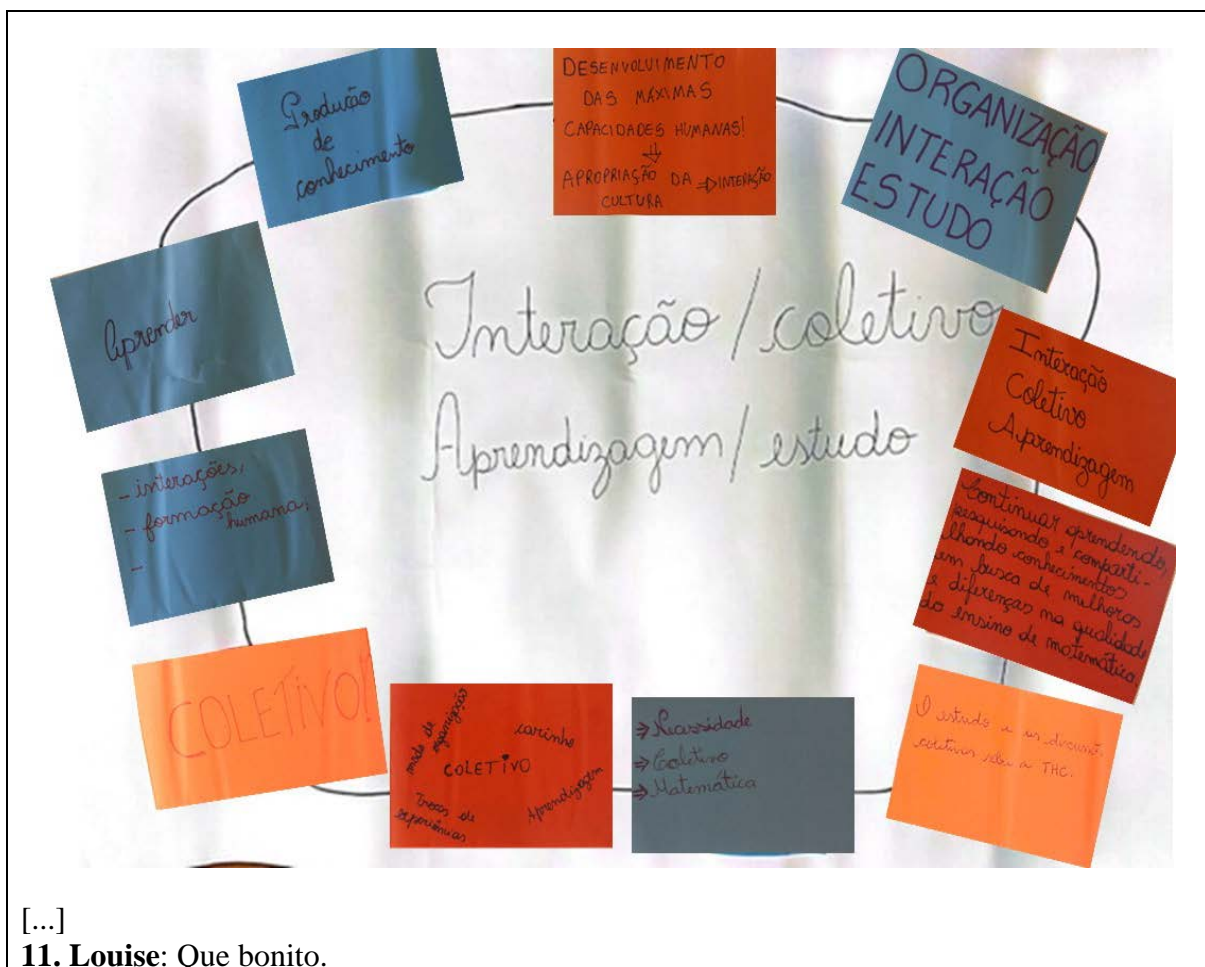 Produção
de
conhecimento
DESENVOLVIMENTO
DAS MÁXIMAS
CAPACIDADES HUMANAS!
⇓
APROPRIAÇÃO DA ⇒ INTERAÇÃO
CULTURA
ORGANIZAÇÃO
INTERAÇÃO
ESTUDO
Aprender
Interação / coletivo
Aprendizagem / estudo
Interação
Coletivo
Aprendizagem
- interações,
- formação
humana;
-
Continuar aprendendo,
pesquisando e comparti-
lhando conhecimentos
em busca de melhoras
e diferenças na qualidade
do ensino de matemática.
COLETIVO!
modo de
organização
carinho
COLETIVO
Trocas de
experiências
Aprendizagem
⇒ Necessidade
⇒ Coletivo
⇒ Matemática
O estudo e as
coletivas sobre a THC.
[...]
11. Louise: Que bonito.